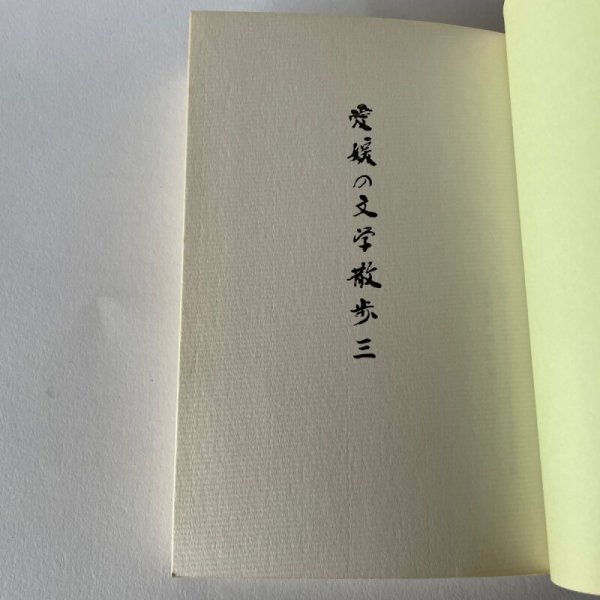 愛媛の文学散歩三